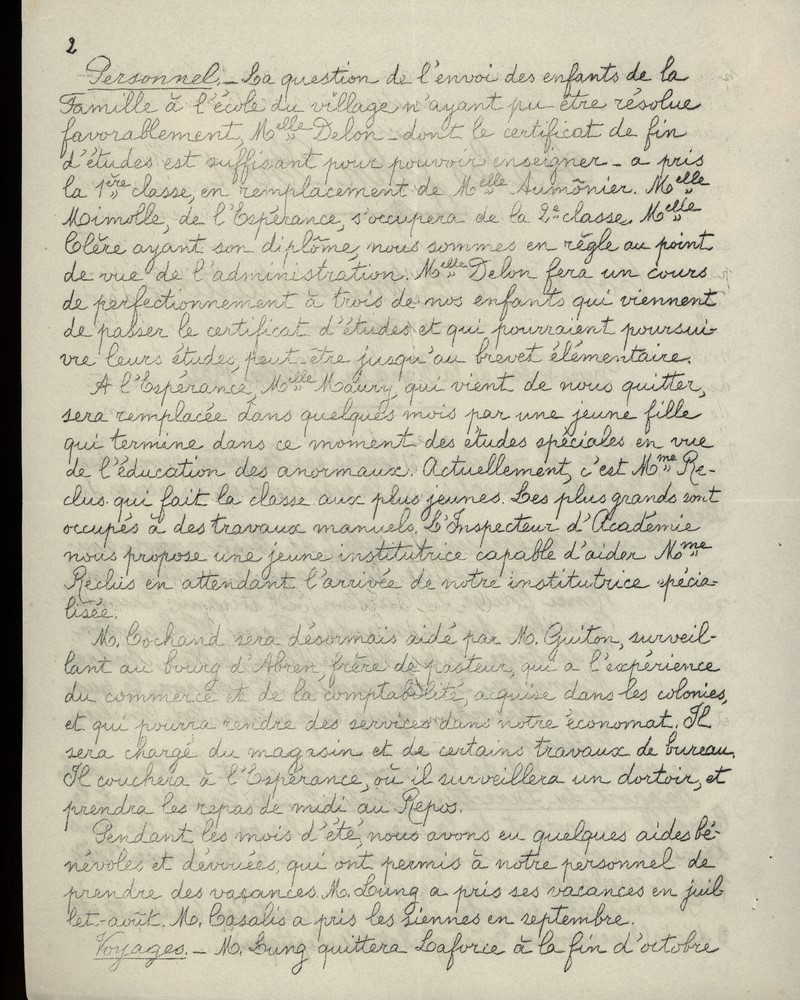 2
Personnel. _ La question de l'envoi des enfants de la
Famille à l'école du village n'ayant pu être résolue
favorablement, Melle Delon _ dont le certificat de fin
d'études est suffisant pour pouvoir enseigner _ a pris
la 1ère classe, en remplacement de Melle Aumônier. Melle
Mimolle, de l'Espérance, s'occupera de la 2e classe. Melle
Clère ayant son diplôme, nous sommes en règle au point
de vue de l'administration. Melle Delon fera un cours
de perfectionnement à trois de nos enfants qui viennent
de passer le certificat d'études et qui pourraient poursui-
vre leurs études, peut-être jusqu'au brevet élémentaire.
A l'Espérance, Melle Maury, qui vient de nous quitter,
sera remplacée dans quelques mois par une jeune fille
qui termine dans ce moment des études spéciales en vue
de l'éducation des anormaux. Actuellement, c'est Mme Re-
clus qui fait la classe aux plus jeunes. Les plus grands sont
occupés à des travaux manuels. L'Inspecteur d'Académie
nous propose une jeune institutrice capable d'aider Mme
Reclus en attendant l'arrivée de notre institutrice spécia-
lisée.
M. Cochand sera désormais aidé par M. Guiton, surveil-
lant au bourg d'Abren, frère de pasteur, qui a l'expérience
du commerce et de la comptabilité, aquise dans les colonies,
et qui pourra rendre des services dans notre économat. Il
sera chargé du magasin et de certains travaux de bureau.
Il couchera à l'Espérance, où il surveillera un dortoir, et
prendra les repas de midi au Repos.
Pendant les mois d'été, nous avons eu quelques aides bé-
névoles et dévouées, qui ont permis à notre personnel de
prendre des vacances. M. Lung a pris ses vacances en juil-
let-août. M. Casalis a pris les siennes en septembre.
Voyages. _ M. Lung quittera Laforce à la fin d'octobre